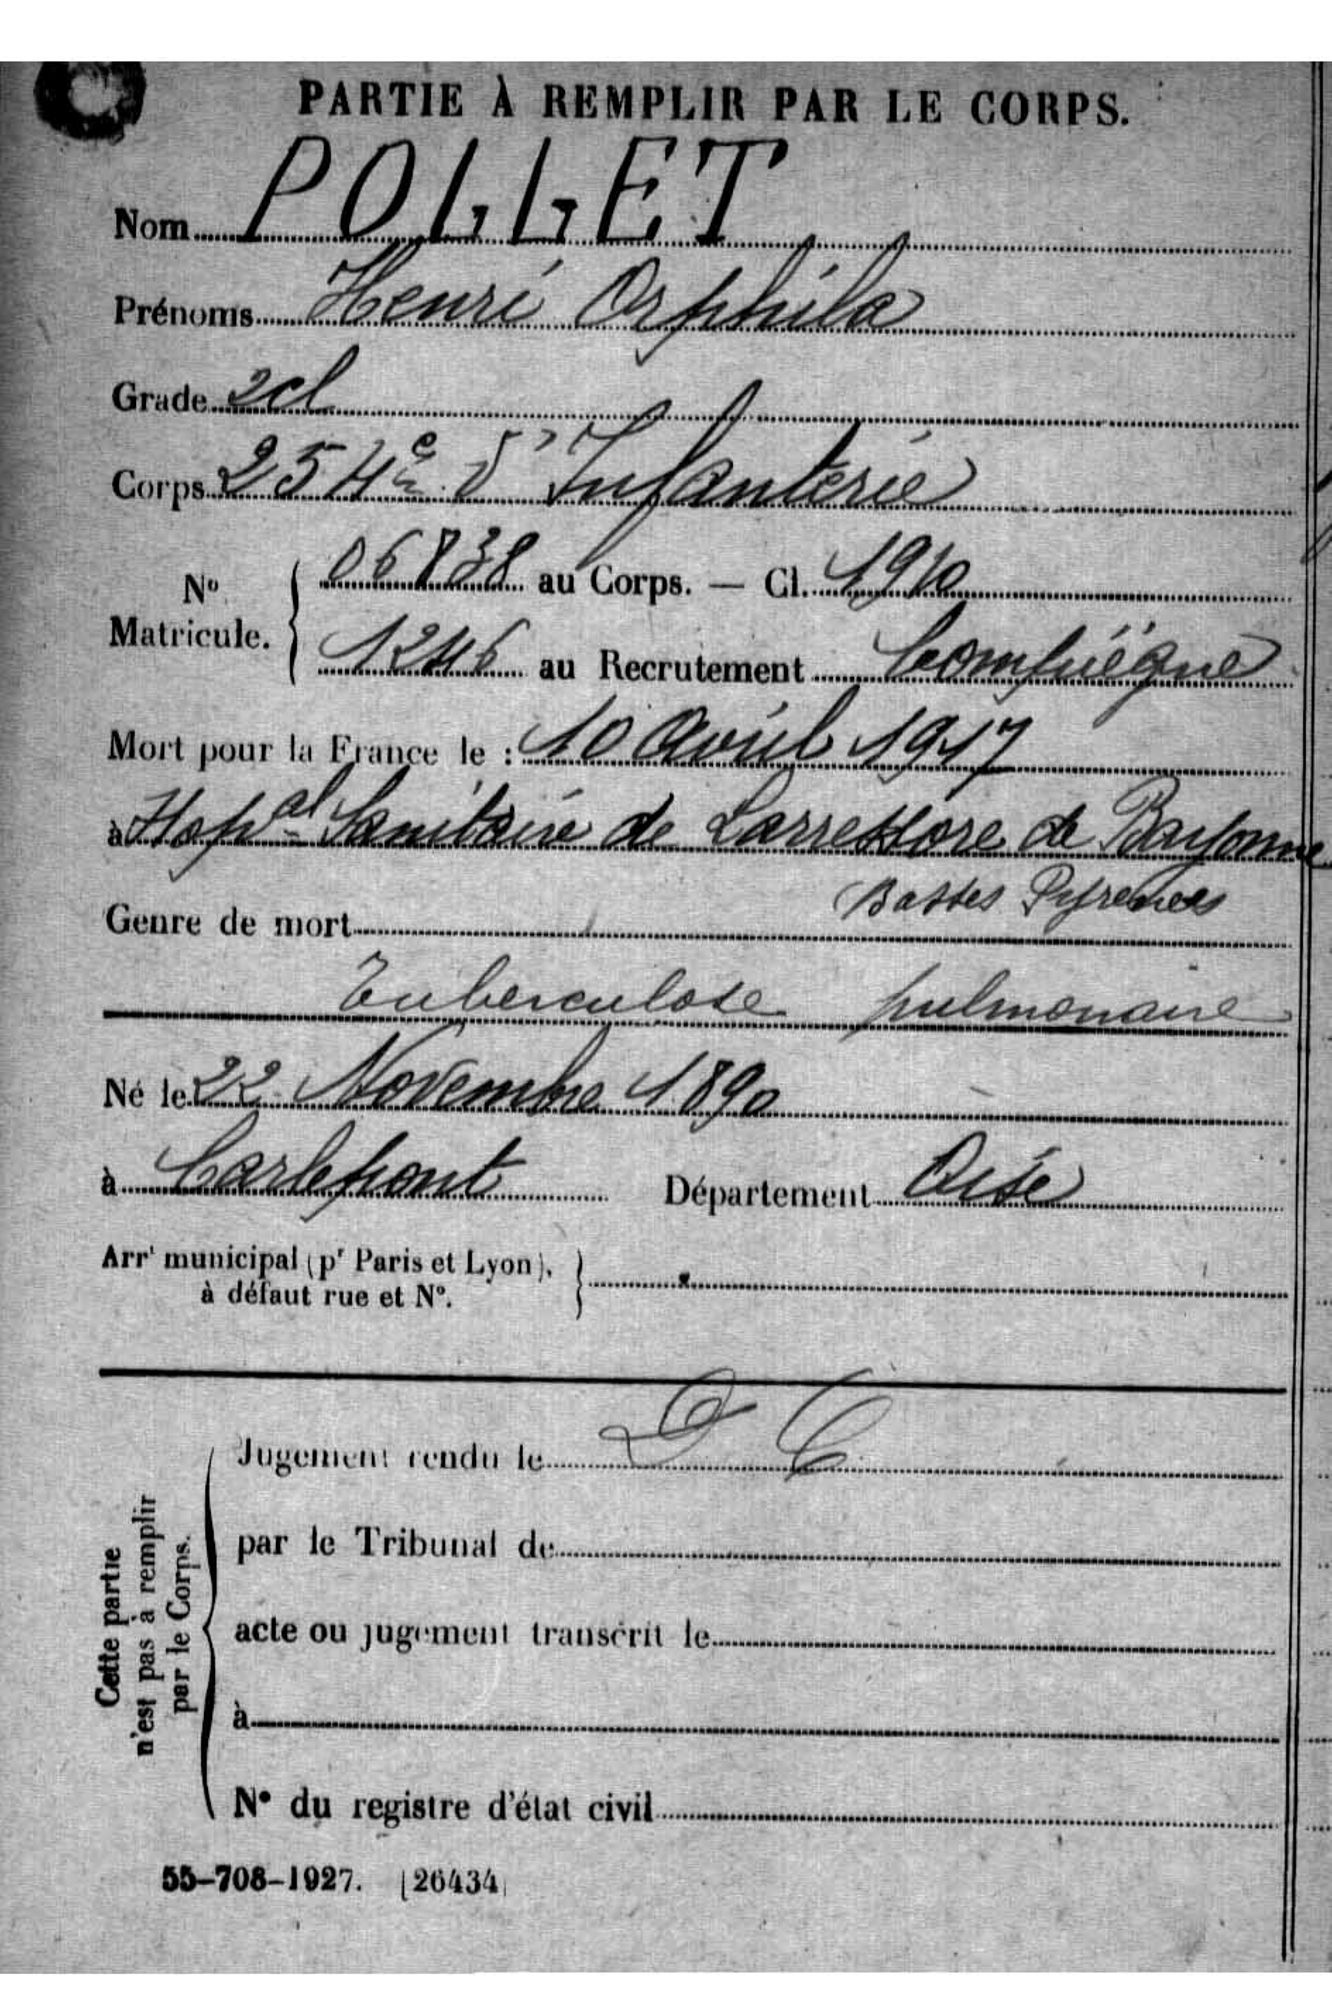 PARTIE À REMPLIR PAR LE CORPS.
Nom POLLET
Prénoms Henri Orphila
Grade 2cl
Corps 254e d'Infanterie
No Matricule. 06838 au Corps. — Cl. 1910
1246 au Recrutement Compiègne
Mort pour la France le : 10 Avril 1917
à Hopal Sanitaire de Larressore de Bayonne
Basses Pyrenees
Genre de mort
Tuberculose pulmonaire
Né le 22 Novembre 1890
à Carlepont Département Oise
Arrt municipal (pr Paris et Lyon),
à défaut rue et N°.
Cette partie
n'est pas à remplir
par le Corps.
Jugement rendu le
par le Tribunal de
acte ou jugement transcrit le
à
N° du registre d'état civil
55-708-1927. [26434]